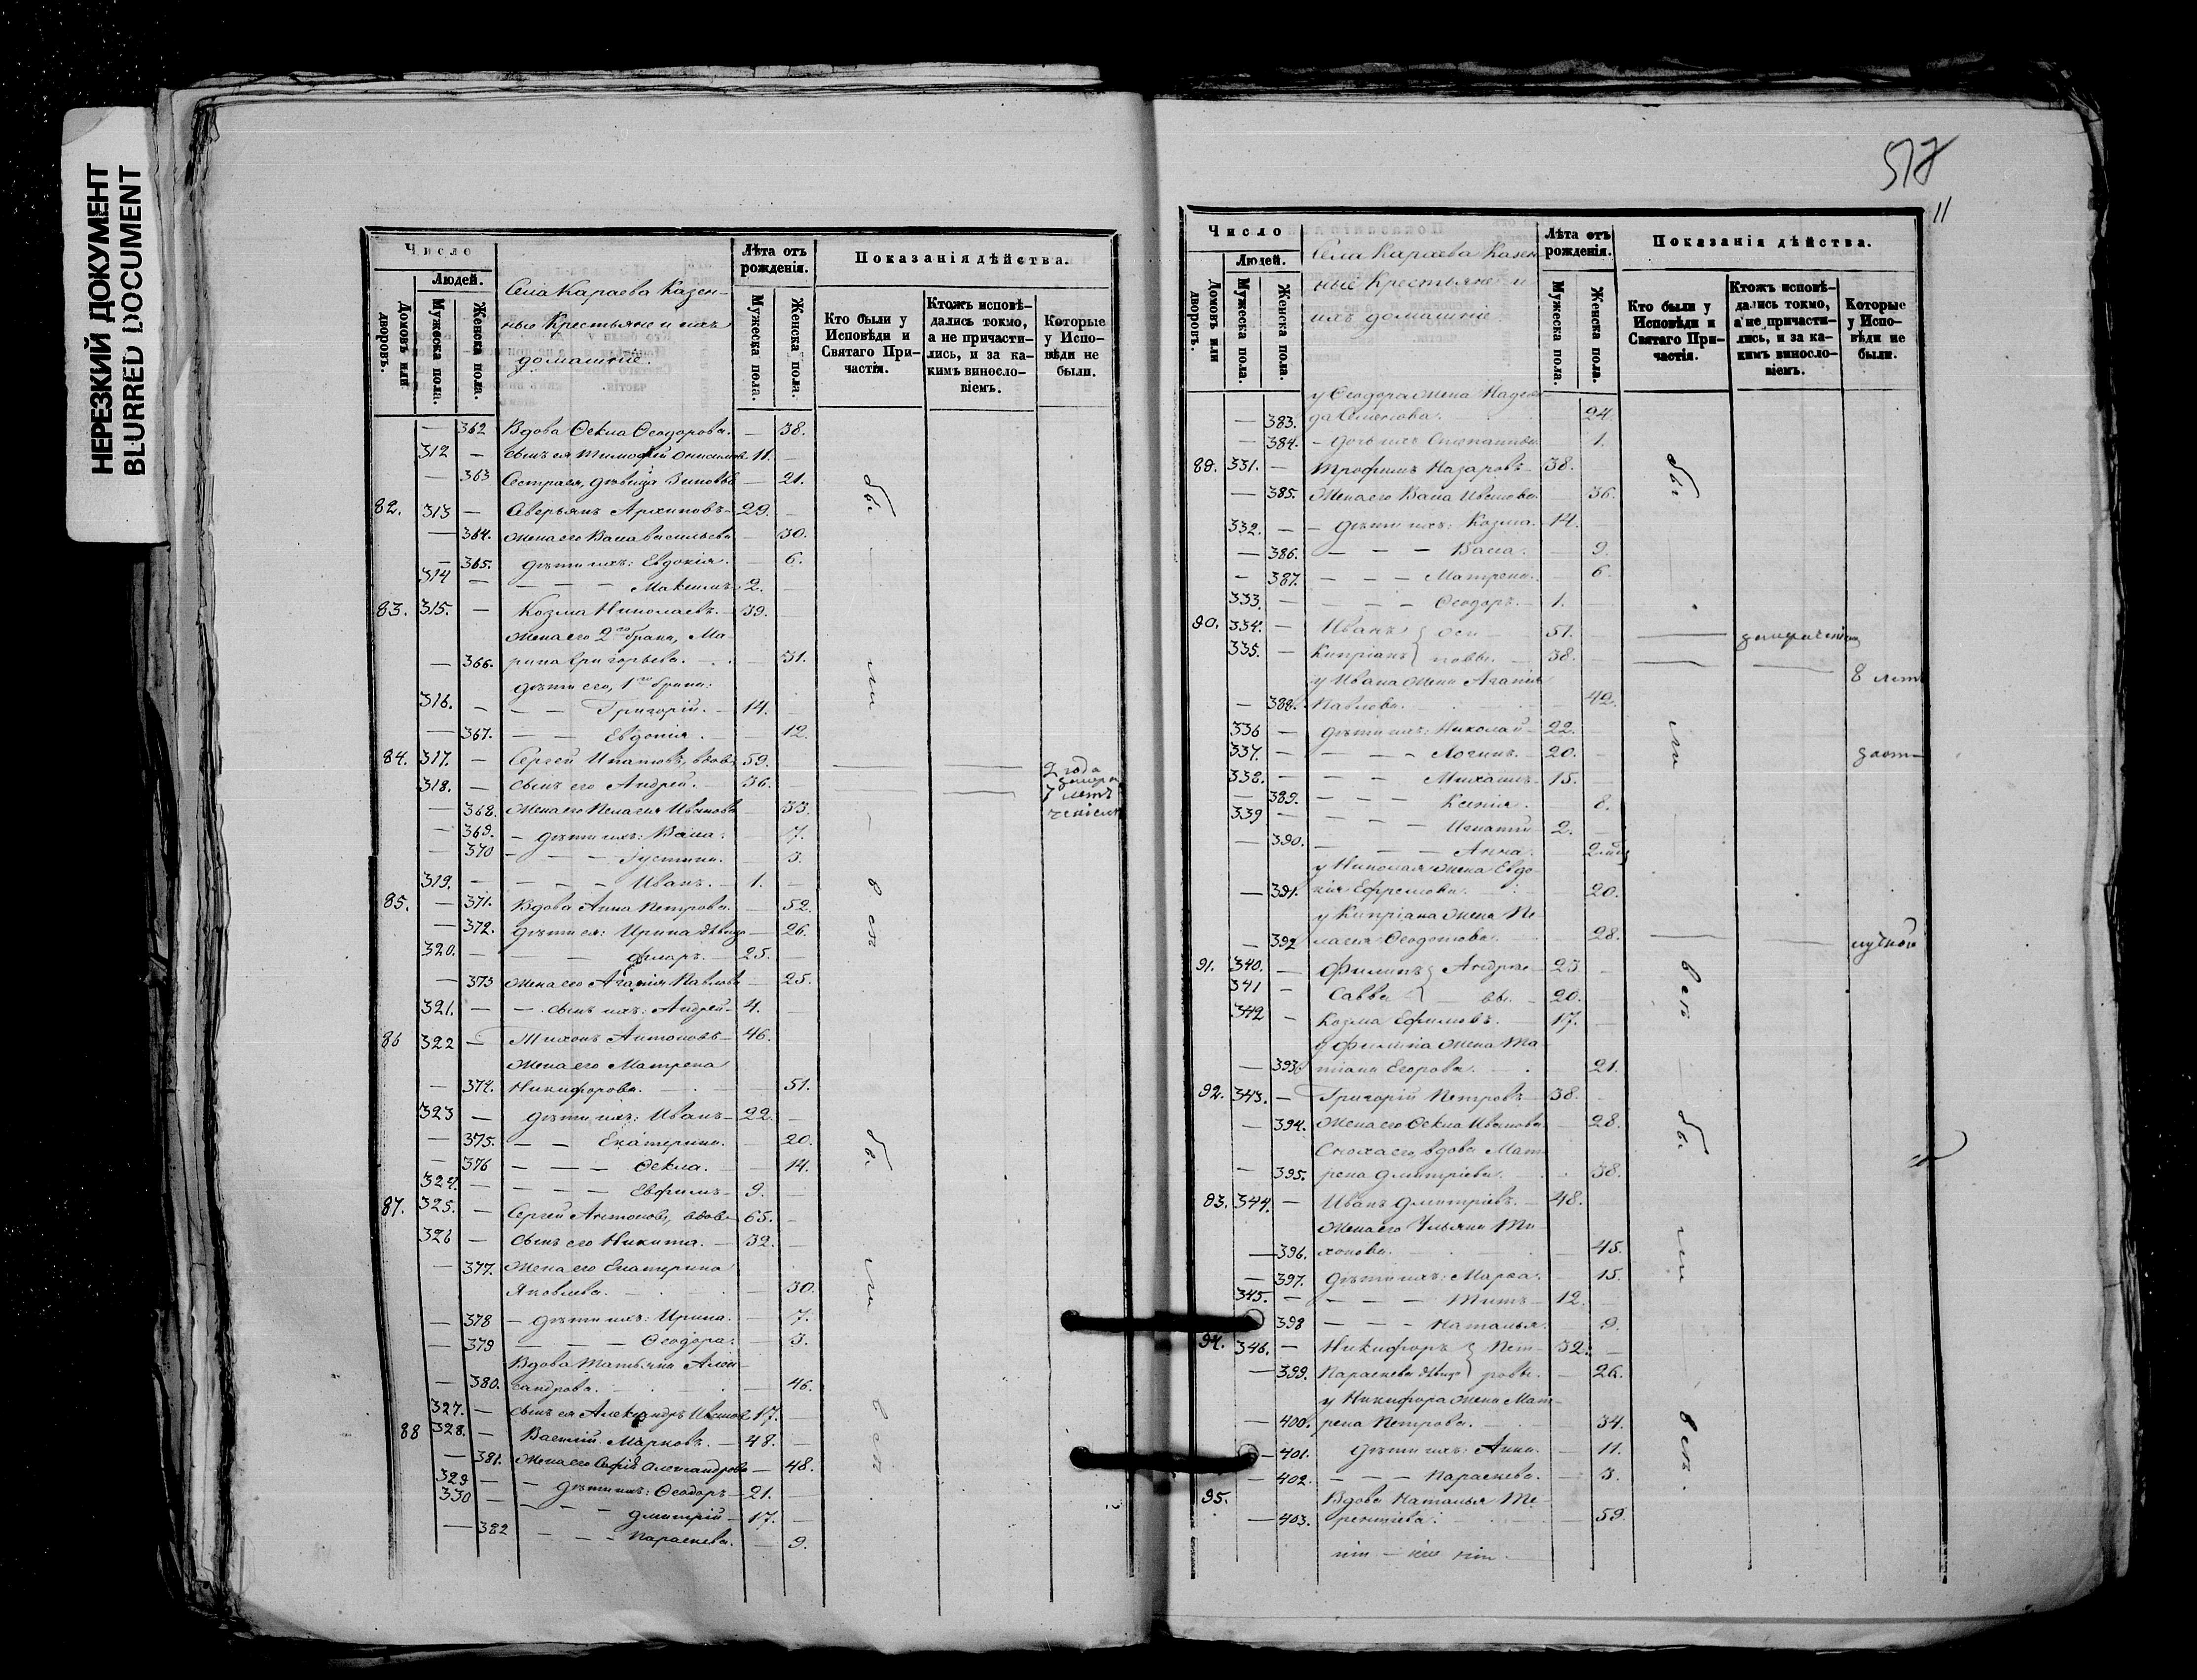 НЕРЕЗКИЙ ДОКУМЕНТ
BLURRED DOCUMENT
Число
Людей.
Домовъ или дворовъ.
Мужеска пола.
Женска пола.
Села Караева Казен-
ные Крестьяне и ихъ
домашніе.
Лѣта отъ рожденія.
Мужеска пола.
Женска пола.
Показанія дѣйства.
Кто были у Исповѣди и Святаго При-частія.
Ктожъ исповѣ-дались токмо, а не причасти-лись, и за ка-кимъ винословіемъ.
Которые у Испо-вѣди не были.
— 362 Вдова Ѳекла Ѳеодорова. — 38.
312 — сынъ ея Тимофей Онисимовъ 11. —
— 363 Сестра ея, дѣвица Зиновья — 21.
82. 313 — Аверьянъ Архиповъ — 29. —
— 364. Жена его Васса Васильева — 30.
— 365. дѣти ихъ: Евдокія. — 6.
314 — — — — Максимъ 2. —
83. 315. — Козма Николаевъ. — 39. —
Жена его 2го брака, Ма-
— 366. рина Григорьева. — 31.
дѣти его, 1го брака:
316. — — — Григорій. — 14. —
— 367. — — Евдокія. — 12.
84. 317. — Сергей Ипатовъ, вдов. 59. — 2 года
318. — сынъ его Андрей. — 36. — 7 летъ
— 368. Жена его Пелагея Иванова 33.
— 369. — дѣти ихъ: Васса. — 7.
— 370 — — — Іустина. — 3.
319. — — — — Иванъ. — 1. —
85. — 371. Вдова Анна Петрова. — 52.
— 372. дѣти ея: Ирина дѣвица — 26.
320. — — — Филаръ. — 25. —
— 373 Жена его Агафія Павлова — 25.
321. — — сынъ ихъ: Андрей — 4. —
86 322 — Тихонъ Антоновъ — 46. —
Жена его Матрена
— 374. Никифорова. — 51.
323 — дѣти ихъ: Иванъ — 22. —
— 375. — — Екатерина. — 20.
— 376 — — — Ѳекла. — 14.
324. — — — — Евфимъ — 9. —
87. 325. — Сергей Антоновъ, вдов. — 65. —
326 — сынъ его Никита. — 32. —
— 377. Жена его Екатерина
Яковлева. — 30.
— 378 — дѣти ихъ: Ирина. — 7.
— 379 — — — Ѳеодора. — 3.
Вдова Татьяна Алек-
— 380. сандрова. — 46.
327. — сынъ ея Александръ Ивановъ 17. —
88 328. — Василій Марковъ. — 48. —
— 381. Жена его Софія Александрова — 48.
329 — — дѣти ихъ: Ѳеодоръ — 21. —
330 — — — — Дмитрій — 17. —
— 382 — — — Параскева. — 9.
бы — ли — всѣ — бы — ли — всѣ.
11
Число
Людей.
Домовъ или дворовъ.
Мужеска пола.
Женска пола.
Села Караева Казен-
ные Крестьяне и
ихъ домашніе.
Лѣта отъ рожденія.
Мужеска пола.
Женска пола.
Показанія дѣйства.
Кто были у Исповѣди и Святаго При-частія.
Ктожъ исповѣ-дались токмо, а не причасти-лись, и за ка-кимъ винословіемъ.
Которые у Испо-вѣди не были.
у Ѳеодора жена Надеж-
— 383. да Семенова. — 24.
— 384. — дочь ихъ Степанида — 1.
89. 331. — Трофимъ Назаровъ — 38. —
— 385. Жена его Васса Иванова — 36.
332. — — дѣти ихъ: Козма. — 14. —
— 386. — — — Васса. — 9.
— 387. — — — Матрена. — 6.
333. — — — — Ѳеодоръ. — 1. —
90. 334. — Иванъ } Оси — 51. —
335. — Кипріанъ } повы. — 38. — 8 летъ
у Ивана жена Агафія
— 388. Павлова. — 42.
336 — дѣти ихъ: Николай — 22. —
337. — — — — Логинъ. — 20. —
338. — — — Михаилъ — 15. —
— 389. — — — Ксенія. — 8.
339 — — — — Игнатій — 2. —
— 390. — — — Анна.
у Николая жена Евдо-
— 391. кія Ефремова. — 20.
у Кипріана жена Пе-
— 392 лагея Ѳеодотова. — 28.
91. 340. — Филипъ } Андрее — 23. —
341 — Савва } — вы. — 20. —
342 — Козма Ефимовъ. — 17. —
у Филипа жена Та-
— 393. тіана Егорова. — 21.
92. 343. — Григорій Петровъ — 38. —
— 394. Жена его Ѳекла Иванова — 28.
Сноха его, вдова Мат-
— 395. рена Дмитріева. — 38.
93. 344. — Иванъ Дмитріевъ. — 48. —
Жена его Ульяна Ти-
— 396. хонова. — 45.
— 397. дѣти ихъ: Марѳа. — 15.
345. — — — — Титъ — 12. —
398 — — — Наталья. — 9.
94. 346. — Никифоръ } Пет- 32. —
— 399. Параскева дѣвица } ровы. — 26.
у Никифора жена Мат-
— 400. рена Петрова. — 34.
— 401. дѣти ихъ: Анна. — 11.
— 402. — — — Параскева. — 3.
95. Вдова Наталья Те-
— 403. рентіева. — 59.
бы — ли — всѣ — бы — ли — всѣ.